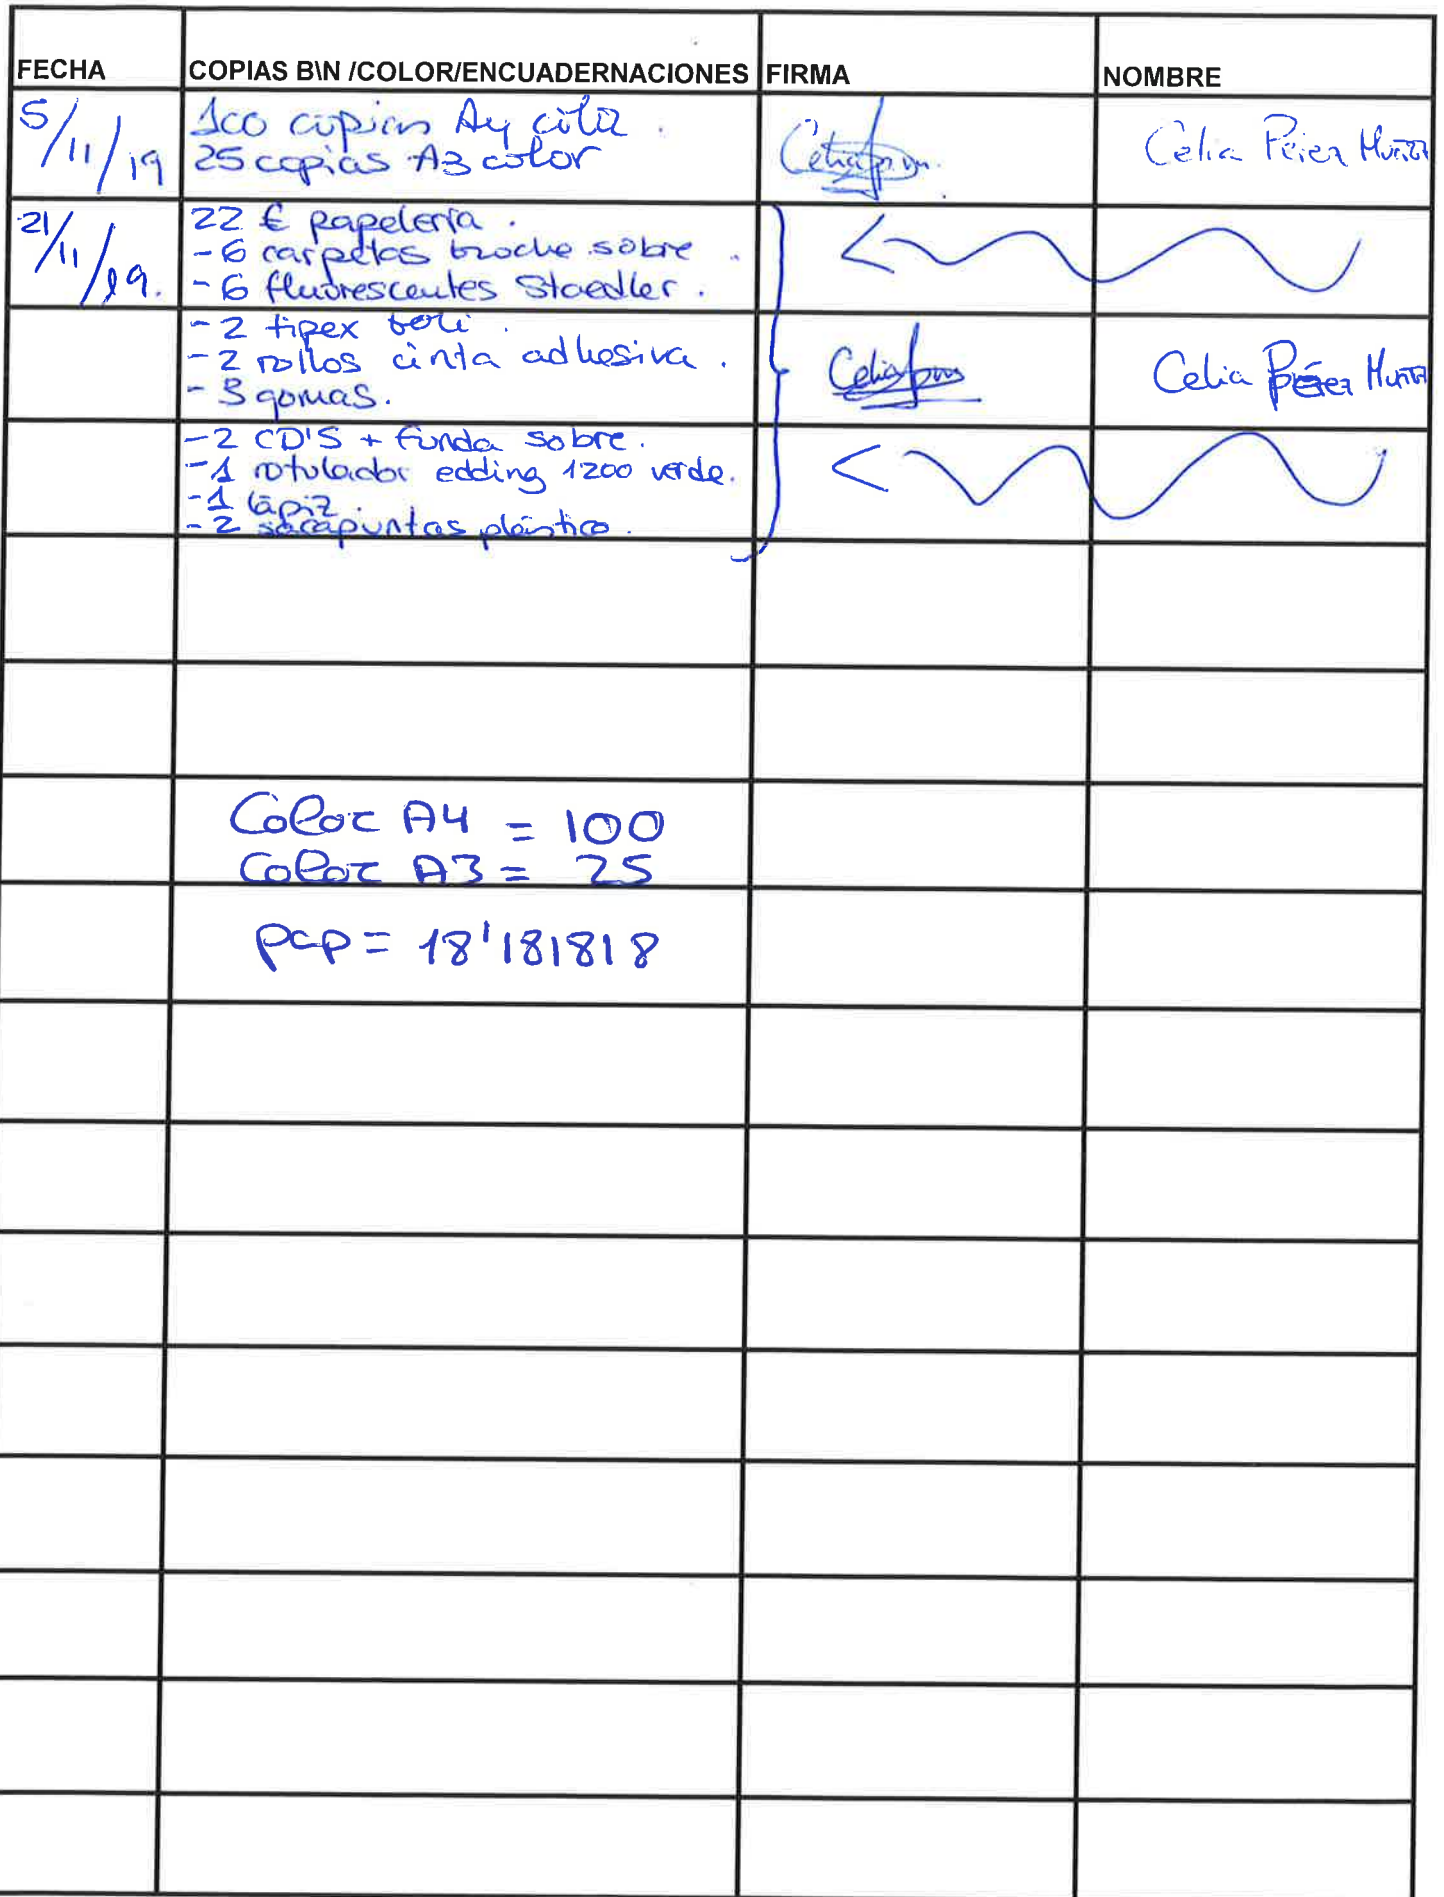 FECHA COPIAS B\N /COLOR/ENCUADERNACIONES FIRMA NOMBRE
5/11/19 100 copias A4 color. Celia Pérez Muñoz
25 copias A3 color
21/11/19. 22 € papelería.
- 6 carpetas broche sobre.
- 6 fluorescentes Staedler.
- 2 tipex boli.
- 2 rollos cinta adhesiva. Celia Pérez Muñoz
- 3 gomas.
- 2 CD'S + funda sobre.
- 1 rotulador edding 1200 verde.
- 1 lápiz.
- 2 sacapuntas plástico.
Color A4 = 100
Color A3 = 25
pap = 18'181818